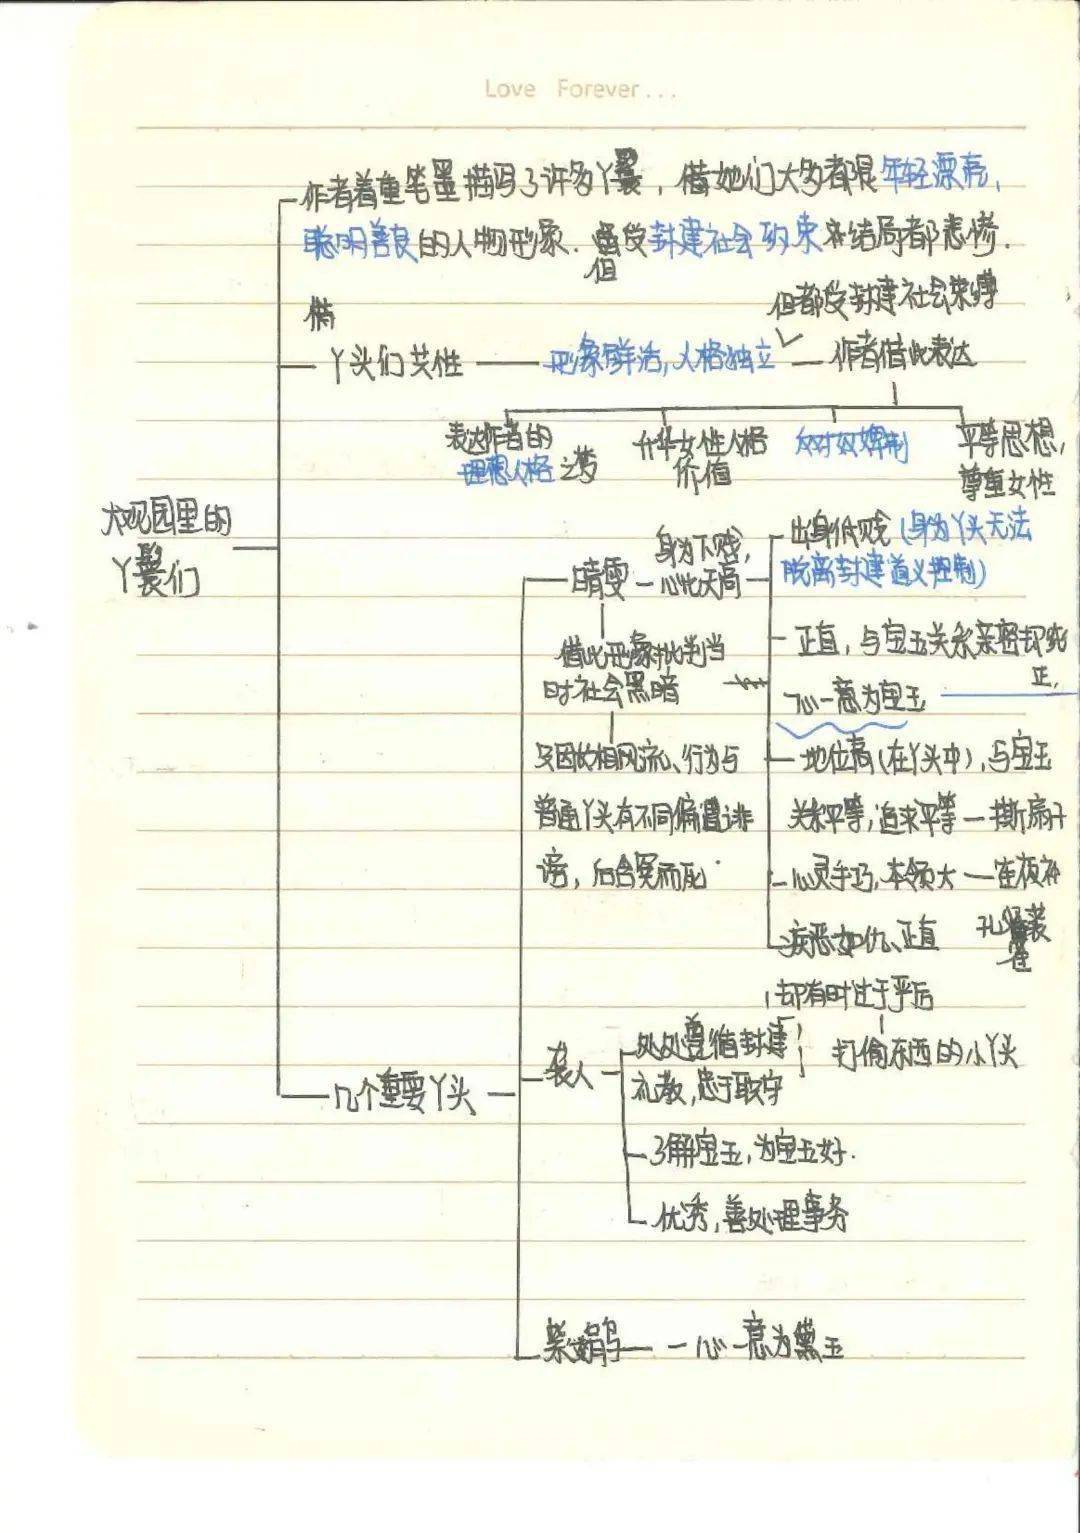 Love Forever...
作者着重笔墨描写了许多丫鬟，借她们大多都是年轻漂亮、
聪明善良的人物形象. 虽受封建社会约束 结局都悲惨.
但
借
但都受封建社会束缚
丫头们共性 — 形象鲜活，人格独立 — 作者借此表达
表达作者的
理想人格之梦
升华女性人格
价值
反对奴婢制
平等思想，
尊重女性
大观园里的
丫鬟们
晴雯
身为下贱，
心比天高
出身低贱（身为丫头无法
脱离封建道义控制）
正直，与宝玉关系亲密却纯
正，
一心一意为宝玉
借此形象批判当
时社会黑暗
只因她相风流、行为与
普通丫头有不同偏遭诽
谤，后含冤而死.
地位高（在丫头中），与宝玉
关系平等，追求平等 — 撕扇子
心灵手巧，本领大 — 连夜补
孔 裘
雀
疾恶如仇、正直
却有时过于严厉
打偷东西的小丫头
几个重要丫头
袭人
处处遵循封建
礼教，忠于职守
了解宝玉，为宝玉好.
优秀，善处理事务
紫鹃 — 一心一意为黛玉